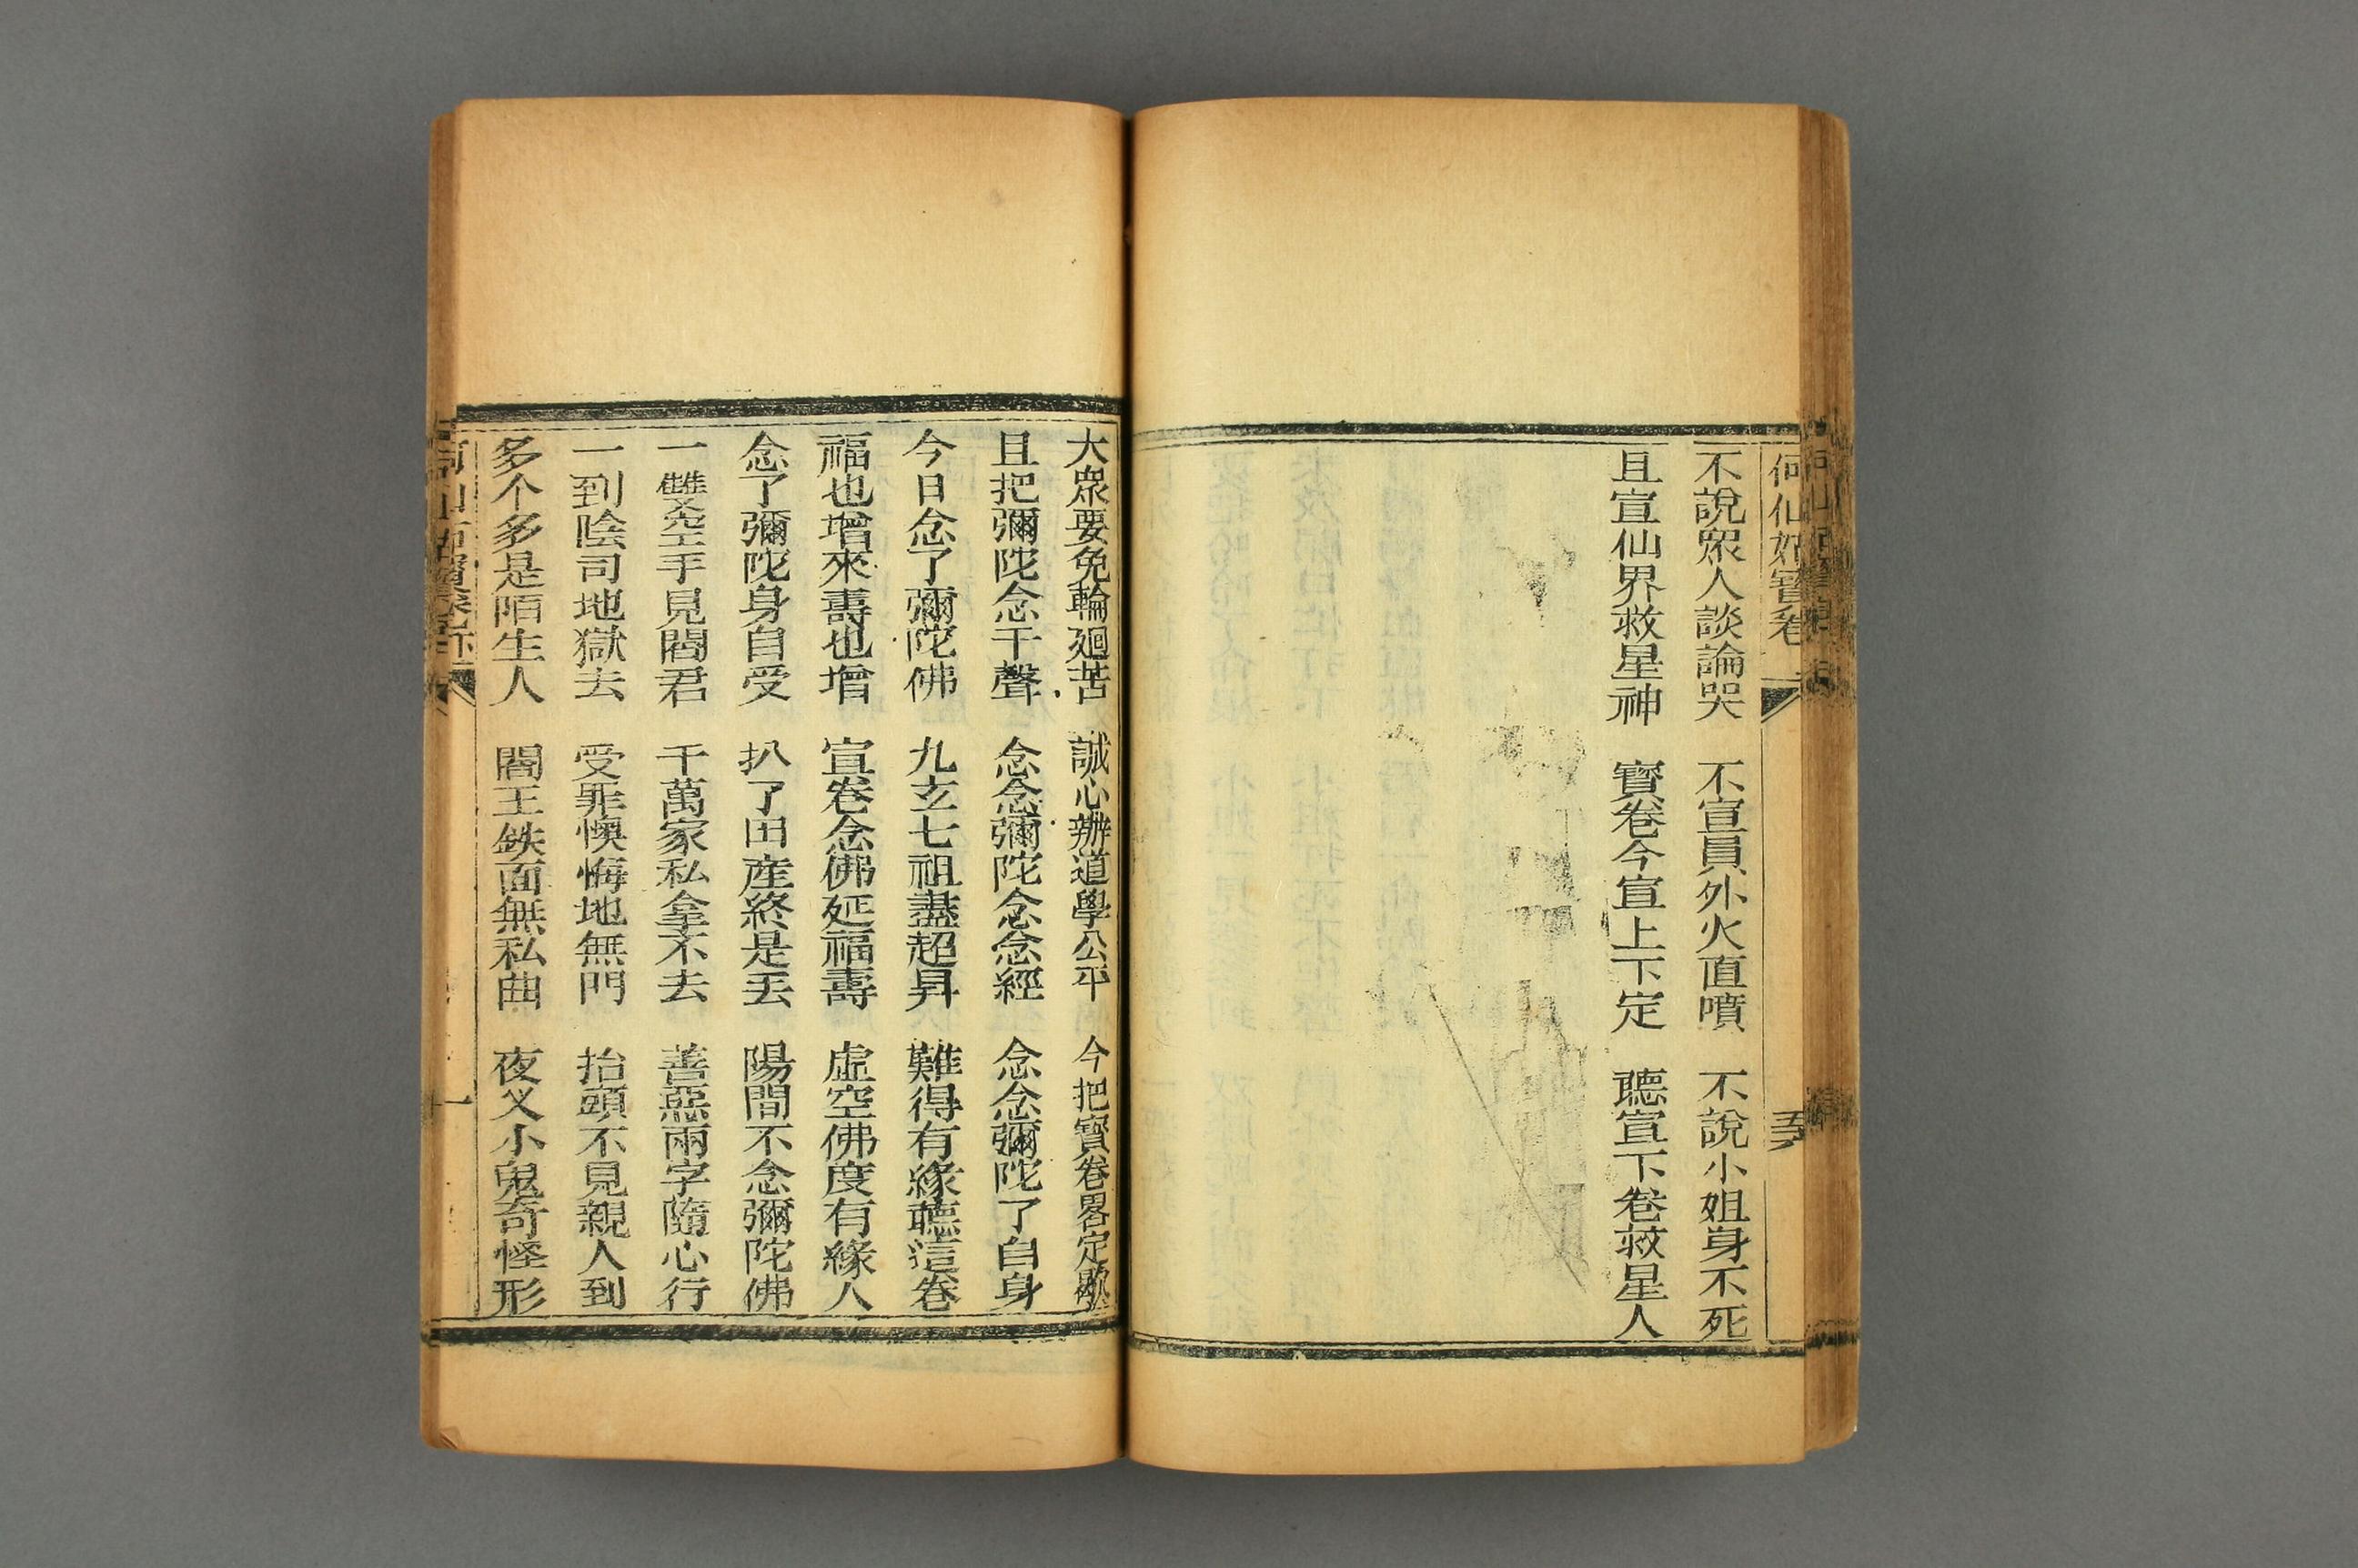 何仙姑寳卷
不說衆人談論哭 不宣員外火直噴 不說小姐身不死
且宣仙界救星神 寳卷今宣上下定 聽宣下卷救星人
大衆要免輪廻苦 誠心辦道學公平 今把寳卷畧定歇
且把彌陀念千聲 念念彌陀念念經 念念彌陀了自身
今日念了彌陀佛 九玄七祖盡超昇 難得有緣聽這卷
福也增來壽也增 宣卷念佛延福壽 虛空佛度有緣人
念了彌陀身自受 扒了田產終是丟 陽間不念彌陀佛
一雙空手見閻君 千萬家私拿不去 善惡兩字隨心行
一到陰司地獄去 受罪懊悔地無門 抬頭不見親人到
多个多是陌生人 閻王鉄面無私曲 夜叉小鬼奇怪形